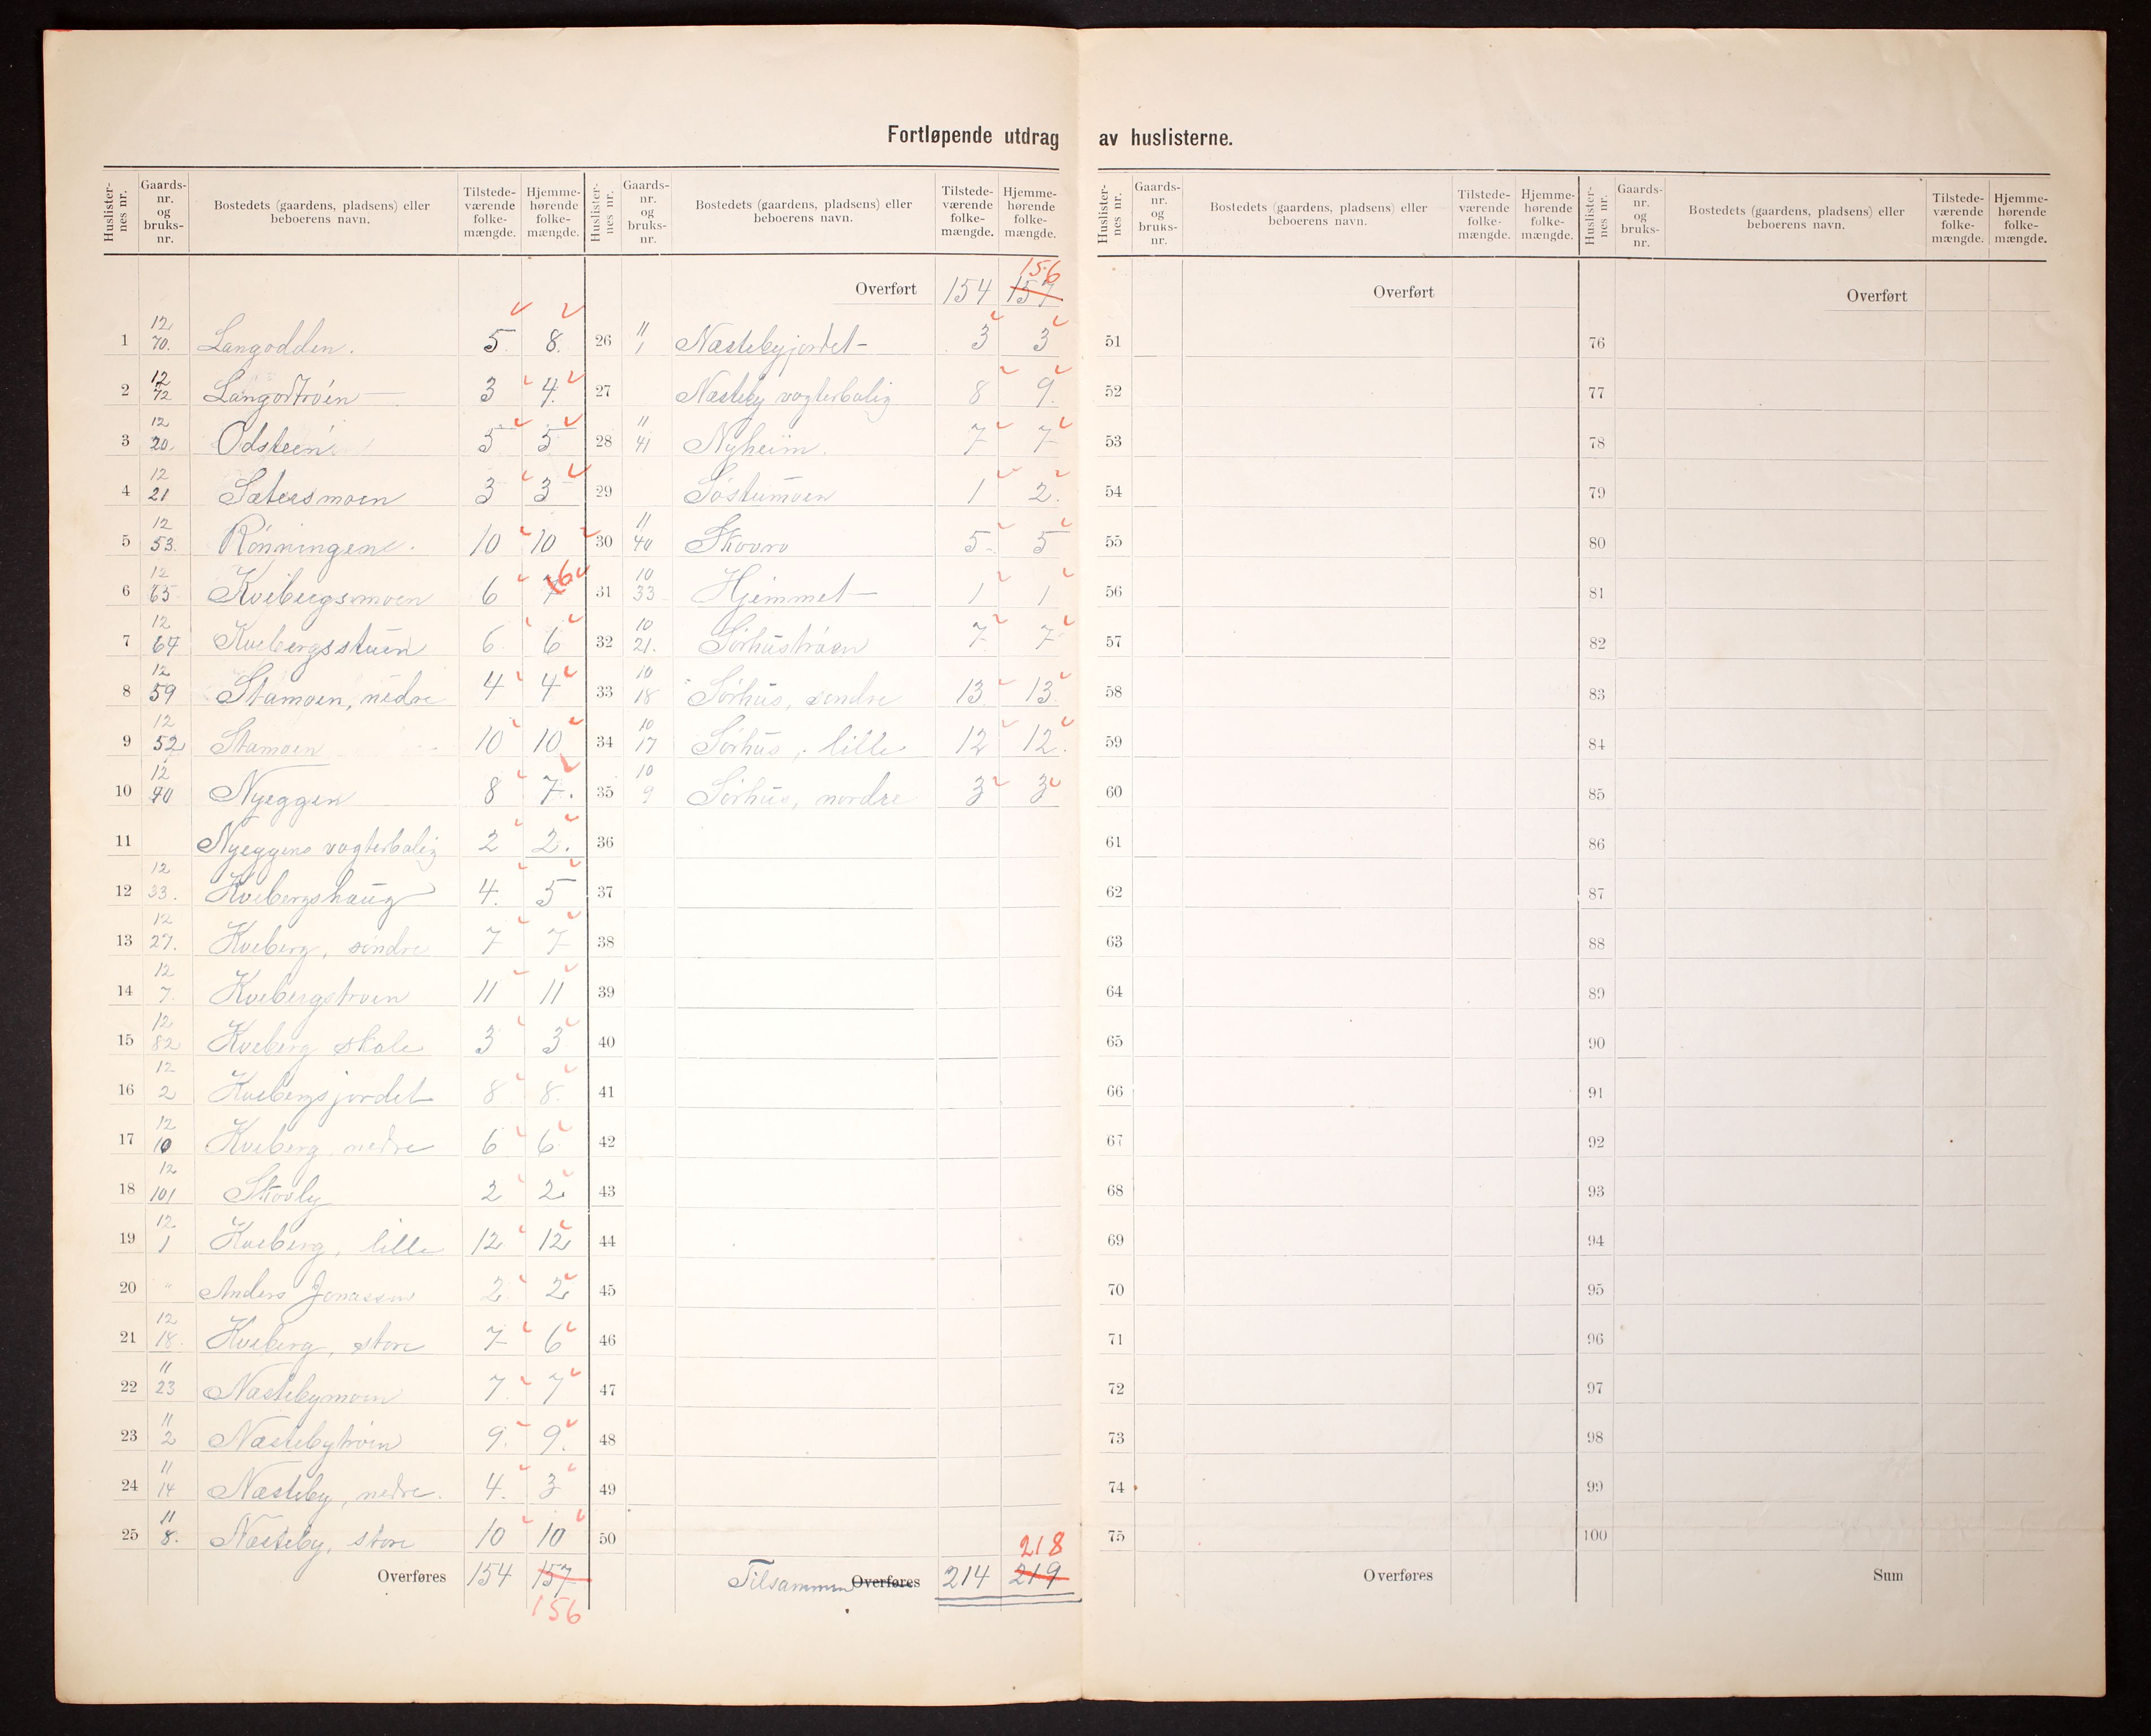 Fortløpende utdrag av huslisterne.
Huslisternes nr. | Gaardsnr. og bruksnr. | Bostedets (gaardens, pladsens) eller beboerens navn. | Tilstedeværende folkemængde. | Hjemmehørende folkemængde.
1 | 12 70. | Langodden. | 5 | 8.
2 | 12 72 | Langodtrøen | 3 | 4.
3 | 12 20. | Odsteen | 5 | 5
4 | 12 21 | Sætersmoen | 3 | 3
5 | 12 53. | Rønningen. | 10 | 10
6 | 12 65 | Kvebergsmoen | 6 | 7 6
7 | 12 64 | Kvebergsstuen | 6 | 6
8 | 12 59 | Stamoen, nedre | 4 | 4
9 | 12 52 | Stamoen | 10 | 10
10 | 12 40 | Nyeggen | 8 | 7.
11 | Nyeggens vogterbolig | 2 | 2.
12 | 12 33. | Kvebergshaug | 4. | 5
13 | 12 27. | Kveberg, søndre | 7 | 7
14 | 12 7. | Kvebergstrøen | 11 | 11
15 | 12 82 | Kveberg skole | 3 | 3
16 | 12 2 | Kvebergsjordet | 8 | 8.
17 | 12 10 | Kveberg, nedre | 6 | 6
18 | 12 101 | Skovly | 2 | 2
19 | 12 1 | Kveberg, lille | 12 | 12
20 | " | Anders Jonassen | 2 | 2
21 | 12 18. | Kveberg, store | 7 | 6
22 | 11 23 | Næstebymoen | 7. | 7
23 | 11 2 | Næstebytrøen | 9. | 9.
24 | 11 14 | Næsteby, nedre. | 4. | 3
25 | 11 8. | Næsteby, store | 10 | 10
Overføres | 154 | 157
156
Huslisternes nr. | Gaardsnr. og bruksnr. | Bostedets (gaardens, pladsens) eller beboerens navn. | Tilstedeværende folkemængde. | Hjemmehørende folkemængde.
156
Overført | 154 | 157
26 | 11 1 | Næstebyjordet | 3 | 3
27 | Næsteby vogterbolig | 8 | 9.
28 | 11 41 | Nyheim. | 7 | 7
29 | Søstumoen | 1 | 2.
30 | 11 40 | Skovro | 5. | 5
31 | 10 33 | Hjemmet | 1 | 1
32 | 10 21. | Sørhustrøen | 7 | 7
33 | 10 18 | Sørhus, søndre | 13. | 13.
34 | 10 17 | Sørhus, lille | 12 | 12.
35 | 10 9 | Sørhus, nordre | 3 | 3
36
37
38
39
40
41
42
43
44
45
46
47
48
49
50
218
Tilsammen Overføres | 214 | 219
Huslisternes nr. | Gaardsnr. og bruksnr. | Bostedets (gaardens, pladsens) eller beboerens navn. | Tilstedeværende folkemængde. | Hjemmehørende folkemængde.
Overført
51
52
53
54
55
56
57
58
59
60
61
62
63
64
65
66
67
68
69
70
71
72
73
74
75
Overføres
Huslisternes nr. | Gaardsnr. og bruksnr. | Bostedets (gaardens, pladsens) eller beboerens navn. | Tilstedeværende folkemængde. | Hjemmehørende folkemængde.
Overført
76
77
78
79
80
81
82
83
84
85
86
87
88
89
90
91
92
93
94
95
96
97
98
99
100
Sum